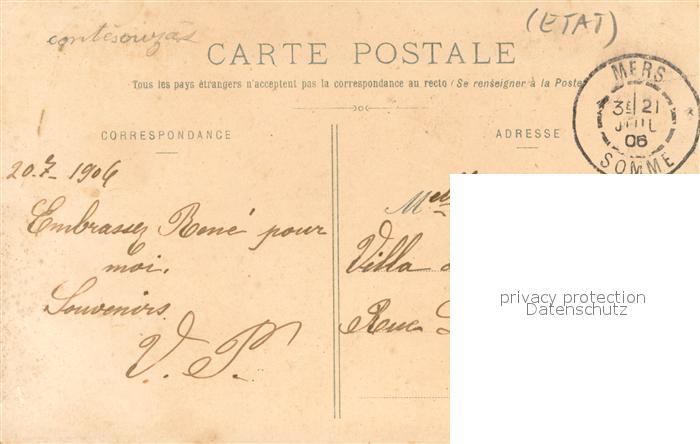 (ETAT)
CARTE POSTALE
Tous les pays étrangers n'acceptent pas la correspondance au recto (Se renseigner à la Poste
MERS
3E 21
JUIL
06
SOMME
CORRESPONDANCE
20.7_1906
Embrassez René pour
moi.
Souvenirs
V. P.
ADRESSE
Melle
Villa
Rue
privacy protection
Datenschutz